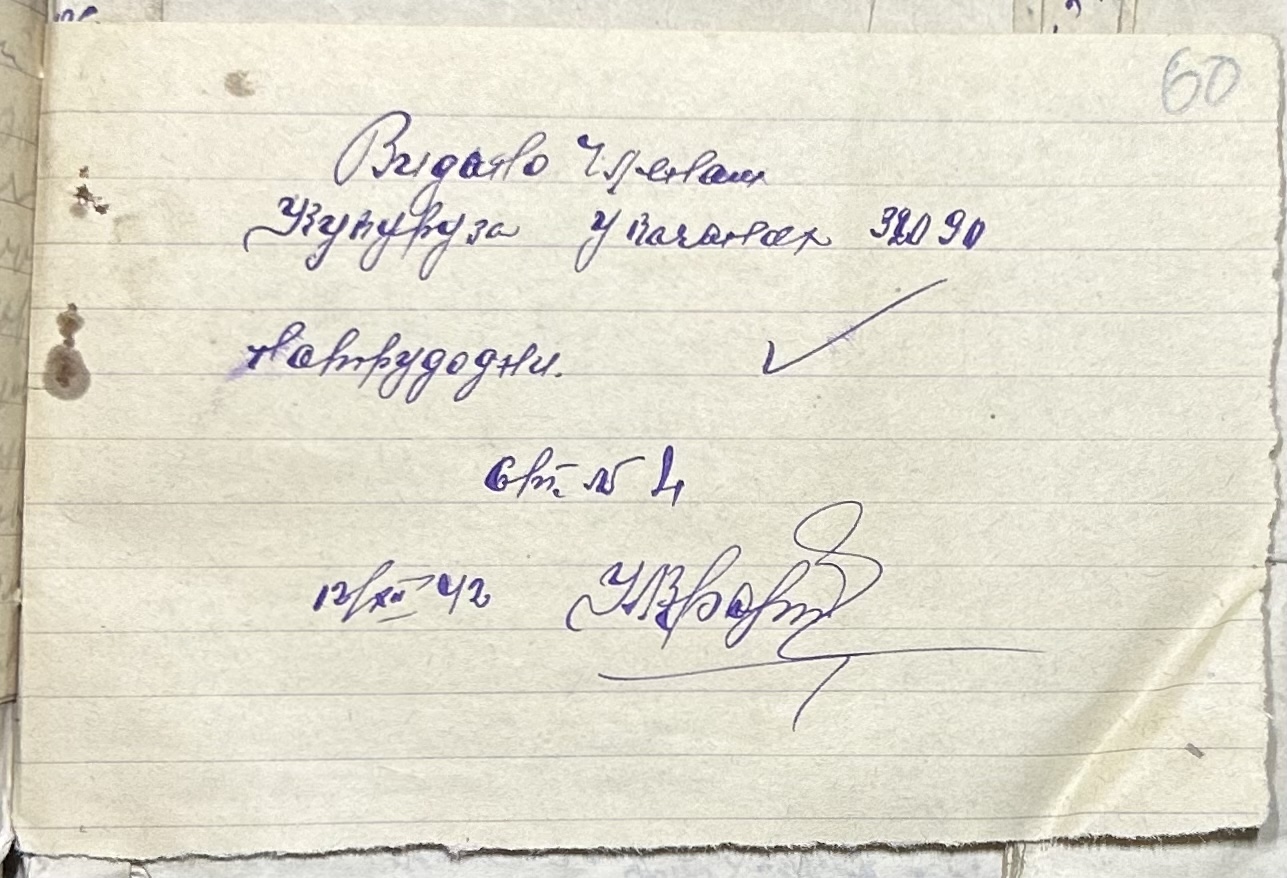 60
Видано Членам
Кукуруза у качанах 320 90
на трудодни.
бр. № 1
12/XII 42